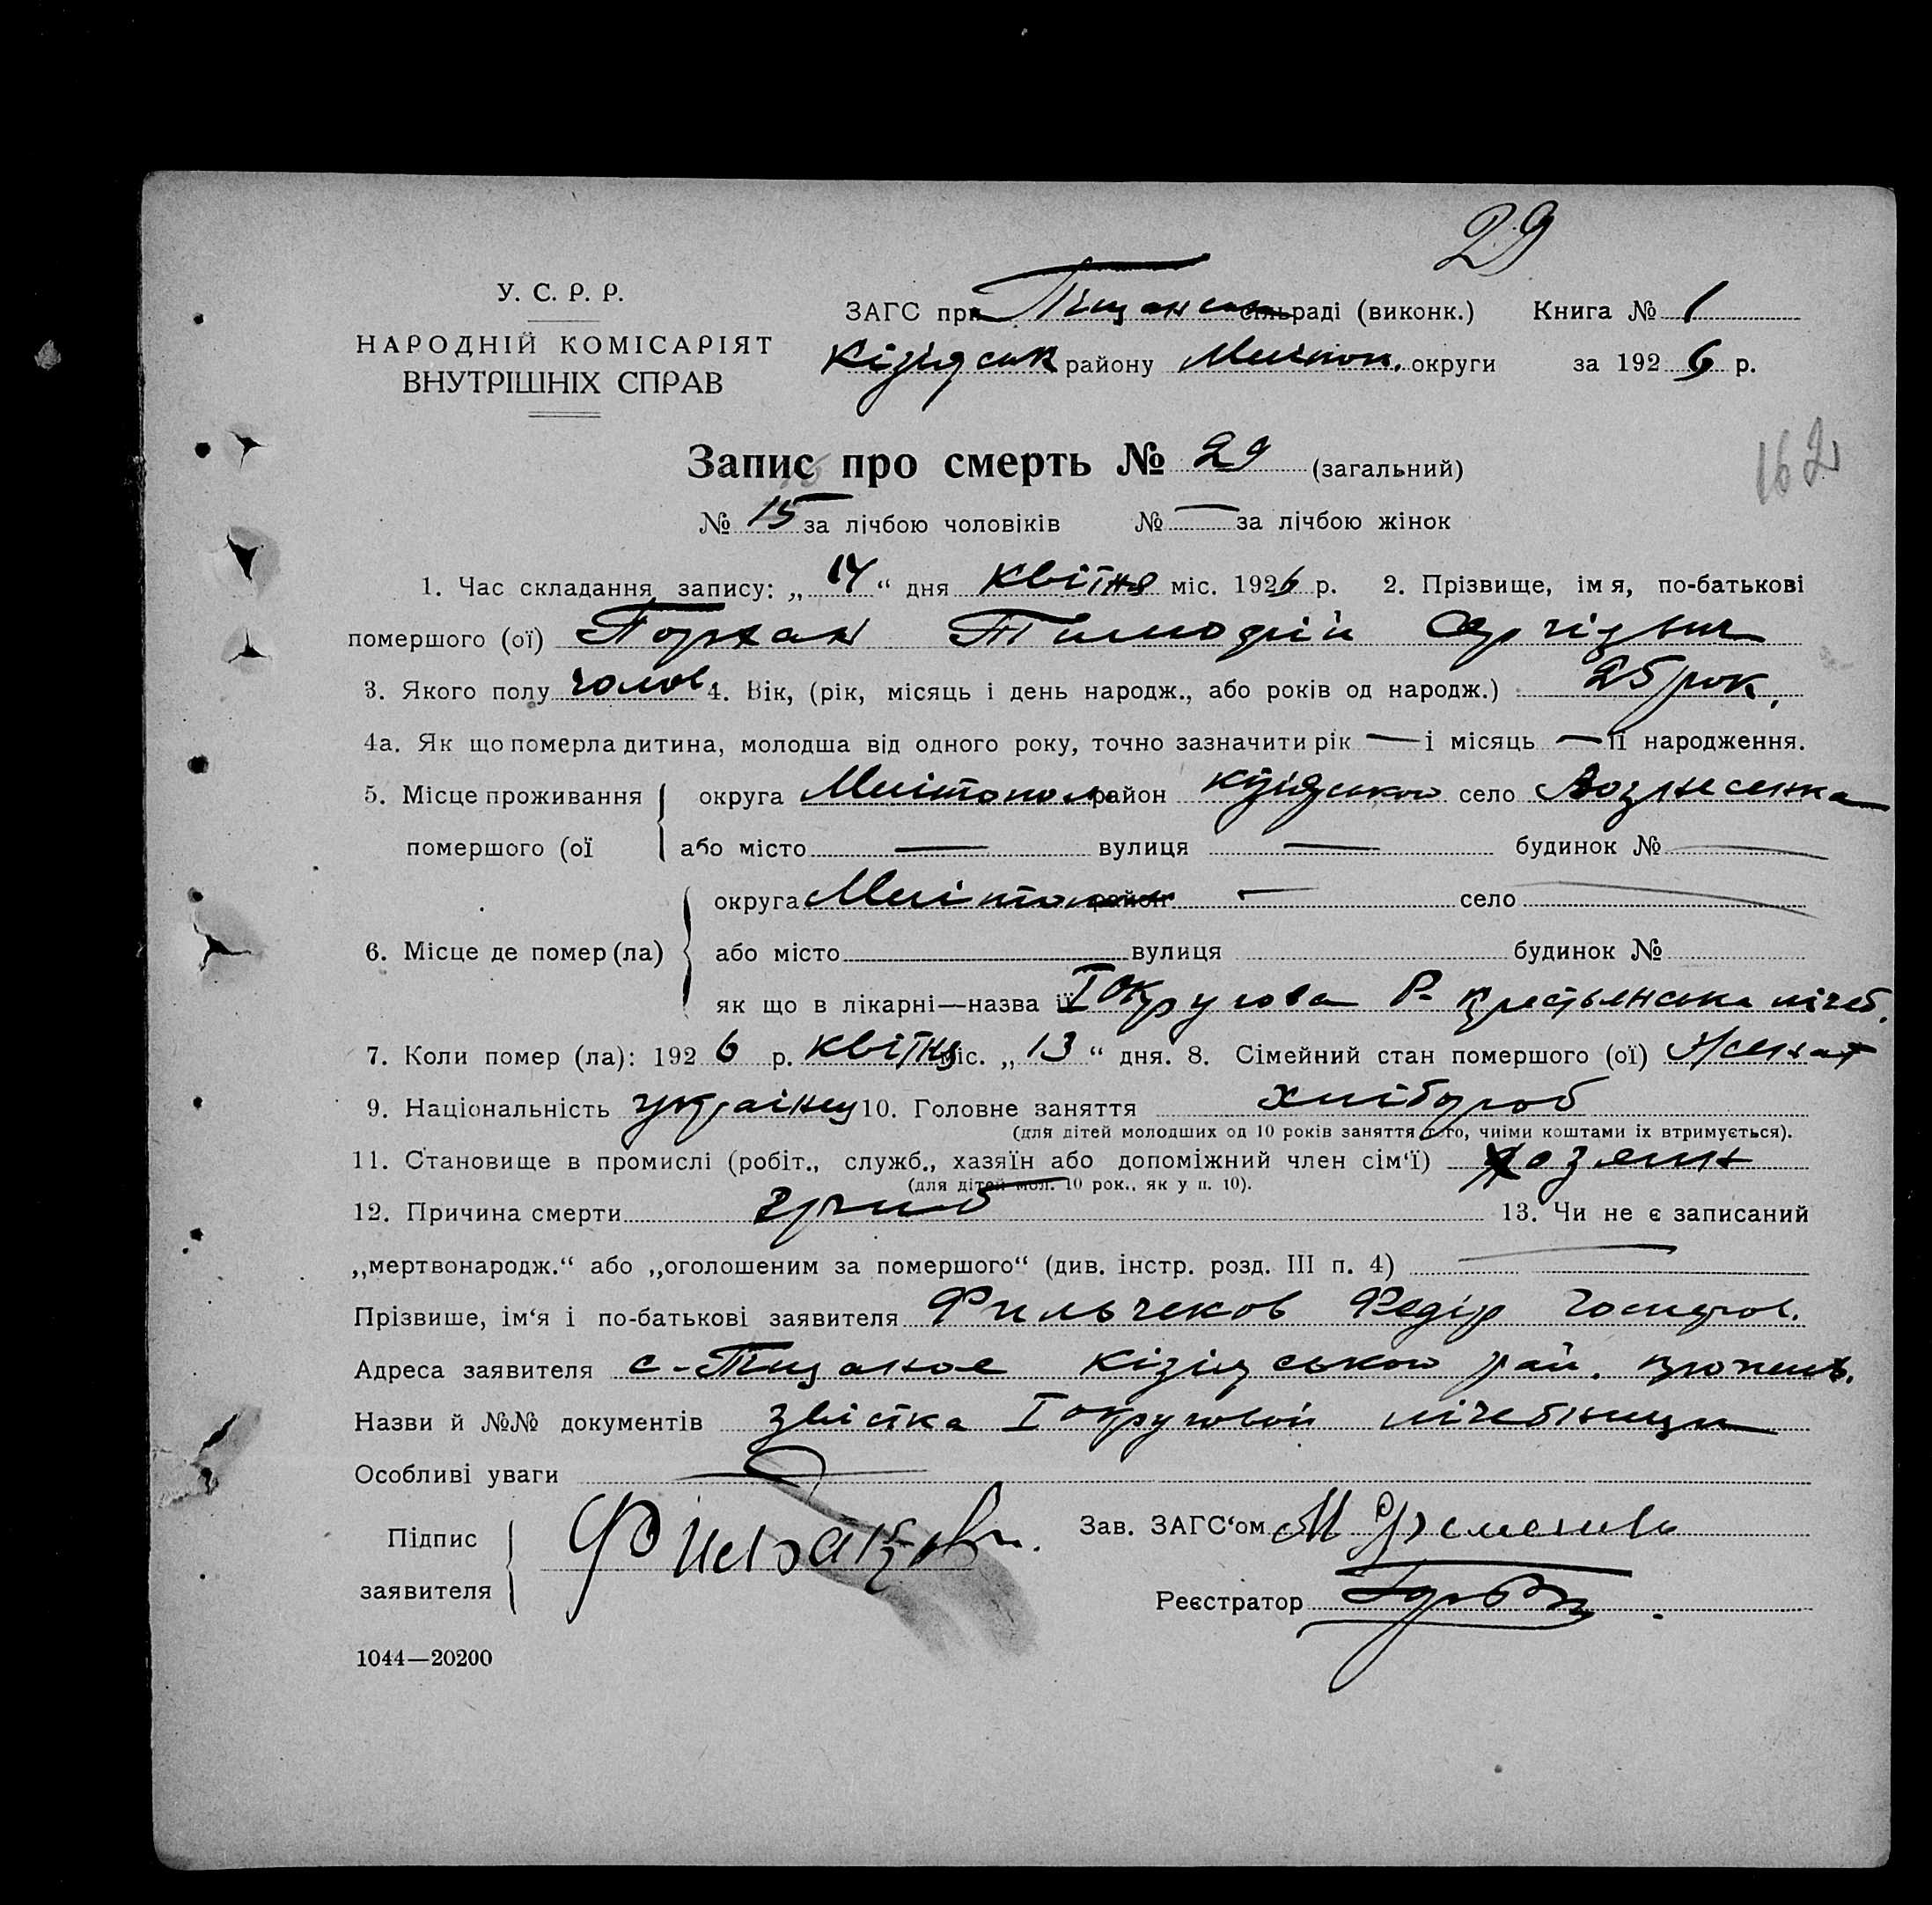 29
У. С. Р. Р.
НАРОДНІЙ КОМІСАРІЯТ
ВНУТРІШНІХ СПРАВ
ЗАГС при Піщанськ сільраді (виконк.) Книга № 1
Кізіярськ району Мелітоп. округи за 1926 р.
162
Запис про смерть № 29 (загальний)
№ 15 за лічбою чоловіків № — за лічбою жінок
1. Час складання запису: „ 14 “ дня квітня міс. 1926 р. 2. Прізвище, імя, по-батькові
помершого (ої) Тимофій
3. Якого полу чолов 4. Вік, (рік, місяць і день народж., або років од народж.) 25 рок.
4а. Як що померла дитина, молодша від одного року, точно зазначити рік — і місяць — її народження.
5. Місце проживання округа Мелітопол район Кізіярського село Вознесенка
помершого (ої або місто — вулиця — будинок № —
округа Мелітопол район — село —
6. Місце де помер (ла) або місто вулиця будинок №
як що в лікарні—назва її І Округова Р. крестьянська лічеб.
7. Коли помер (ла): 1926 р. квітня міс. „ 13 “ дня. 8. Сімейний стан помершого (ої) Женат
9. Національність українец 10. Головне заняття хлібороб
(для дітей молодших од 10 років заняття того, чиїми коштами їх втримується).
11. Становище в промислі (робіт., служб., хазяїн або допоміжний член сім‘ї) хозяин
(для дітей мол. 10 рок., як у п. 10).
12. Причина смерти грип 13. Чи не є записаний
„мертвонародж.“ або „оголошеним за помершого“ (див. інстр. розд. III п. 4) —
Прізвише, ім‘я і по-батькові заявителя Фильчеков Федір
Адреса заявителя с-Піщаное Кізіярського рай.
Назви й №№ документів звістка І округовой лічебници
Особливі уваги —
Підпис
заявителя
Зав. ЗАГС‘ом
Реєстратор
1044—20200